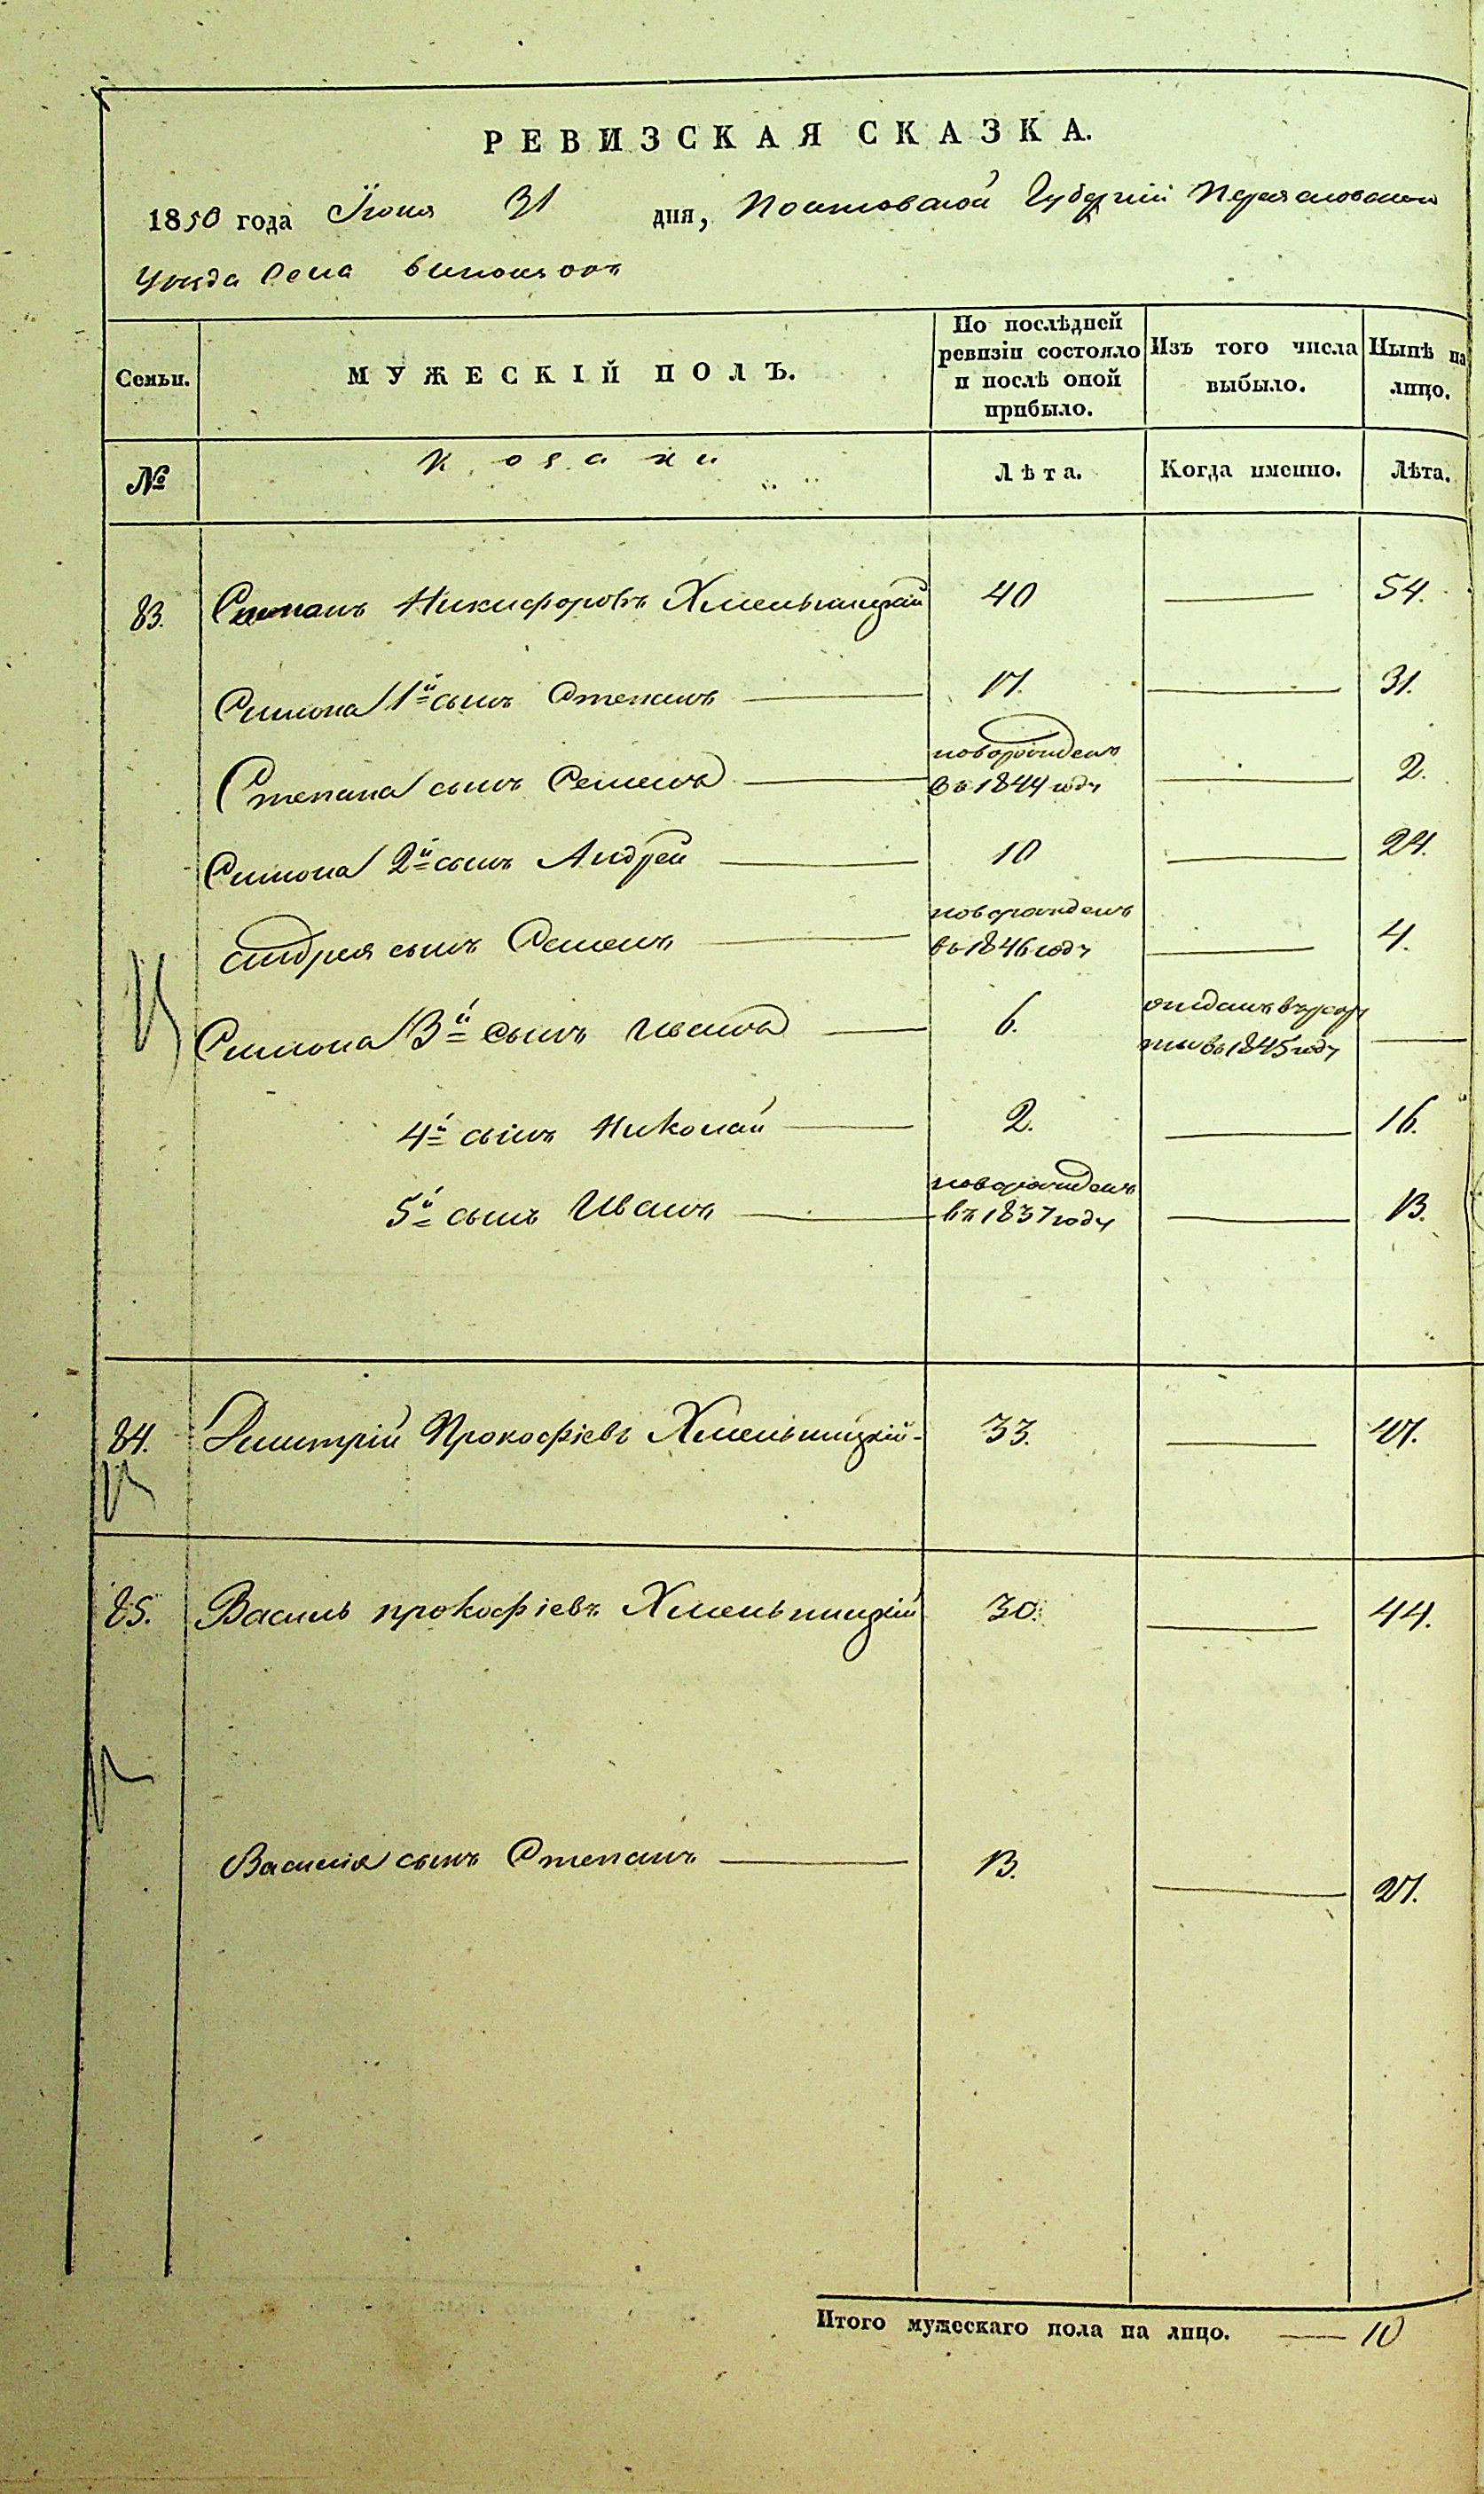 РЕВИЗСКАЯ СКАЗКА.
1850 года Їюня 31 дня, Полтавской Губерніи Переяславскаго
Уѣзда Села
Семьи. МУЖЕСКІЙ ПОЛЪ. По послѣдней ревизіи состояло и послѣ оной прибыло. Изъ того числа выбыло. Нынѣ на лицо.
№ Козаки Лѣта. Когда именно. Лѣта.
83. Никифоровъ Хмельницкій 40 — 54.
Симона 1й сынъ Степанъ — 17. — 31.
Степана сынъ Семенъ — новорожденъ въ 1844 году — 2.
Симона 2й сынъ Андрей — 10 — 24.
Андрея сынъ Семенъ — новорожденъ въ 1846 году — 4.
Симона 3й сынъ Иванъ — 6. отданъ въ рекруты въ 1845 году —
4й сынъ Николай — 2. — 16.
5й сынъ Иванъ — новорожденъ въ 1837 году — 13.
84. Димитрій Прокофіевъ Хмельницкій - 33. — 47.
85. Василь прокофіевъ Хмельницкій 30. — 44.
Василія сынъ Степанъ — 13. — 27.
Итого мужескаго пола на лицо. — 10